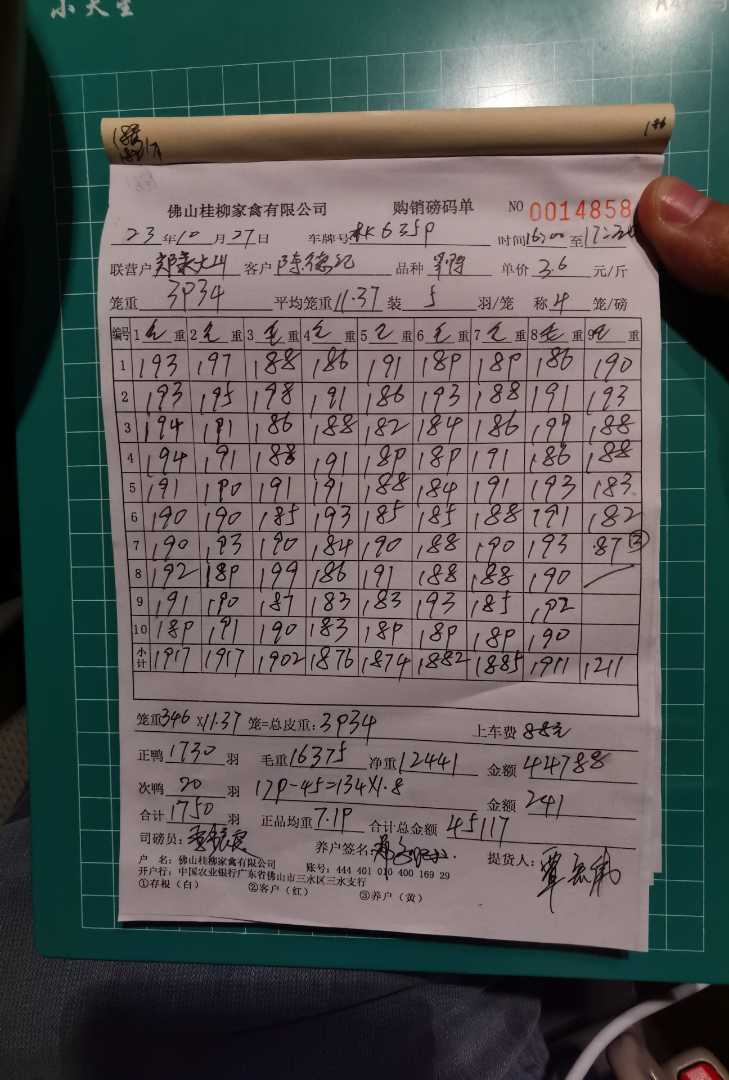 小天
佛山桂柳家禽有限公司 购销磅码单 NO 0014858
23年10月27日 车牌号 635P 时间16:00至17:
联营户 客户 陈德记 品种 单价 3.6 元/斤
笼重 3934 平均笼重 11.37 装 5 羽/笼 称 4 笼/磅
编号 1 毛 重 2 毛 重 3 毛 重 4 毛 重 5 毛 重 6 毛 重 7 毛 重 8 毛 重 9 毛 重
1 193 197 188 186 191 189 189 186 190
2 193 195 198 191 186 193 188 191 193
3 194 191 186 188 182 184 186 199 188
4 194 191 188 191 189 189 191 186 188
5 191 190 191 191 188 184 191 193 183
6 190 190 185 193 185 185 188 191 182
7 190 193 190 184 190 188 190 193 87 ②
8 192 189 199 186 191 188 188 190
9 191 190 187 183 183 193 185 192
10 189 191 190 183 189 189 189 190
小计 1917 1917 1902 1876 1874 1882 1885 1911 1211
笼重 346 × 11.37 笼=总皮重: 3934 上车费 88元
正鸭 1730 羽 毛重 16375 净重 12441 金额 44788
次鸭 20 羽 179-45=134×1.8 金额 241
合计 1750 羽 正品均重 7.19 合计总金额 45117
司磅员: 养户签名: 提货人:
户 名: 佛山桂柳家禽有限公司 账号: 444 401 010 400 169 29
开户行: 中国农业银行广东省佛山市三水区三水支行
①存根(白) ②客户(红) ③养户(黄)